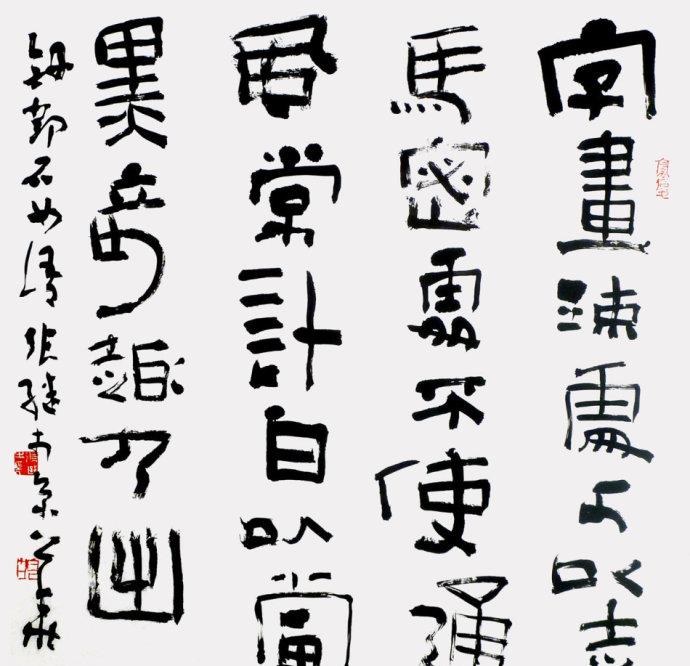 字畫疎處可以走
馬密處不使通
風常計白以當
黑奇趣乃出
鄧石如語 張繼於京